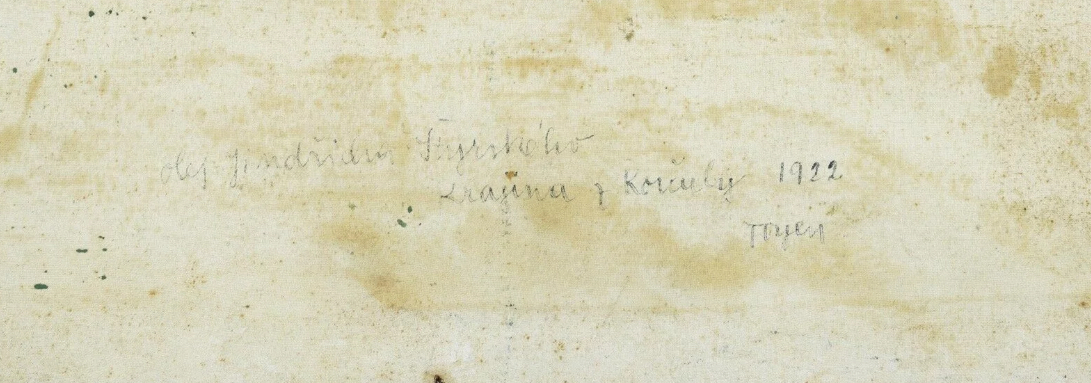 olej Jindřicha Štyrského
Krajina z Korčuly 1922
Toyen